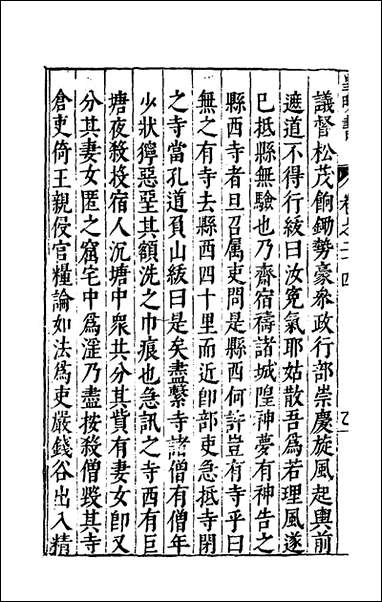 皇明書 卷之二十四
議督松茂餉鋤勢豪叅政行部崇慶旋風起輿前
遮道不得行紱曰汝寃氣耶姑散吾爲若理風遂
已抵縣無驗也乃齋宿禱諸城隍神夢有神告之
縣西寺者旦召属吏問是縣西何許豈有寺乎曰
無之有寺去縣西四十里而近卽部吏急抵寺閉
之寺當孔道負山紱曰是矣盡繫寺諸僧有僧年
少狀獰惡堊其額洗之巾痕也急訊之寺西有巨
塘夜殺投宿人沉塘中衆共分其貲有妻女卽又
分其妻女匿之窟宅中爲淫乃盡按殺僧毀其寺
倉吏倚王親侵官糧論如法爲吏嚴錢谷出入精